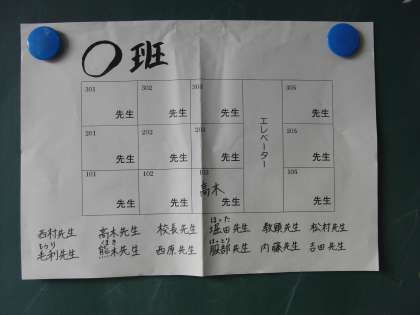 〇班
301 302 303 305
先生 先生 先生 先生
エレベーター
201 202 203 205
先生 先生 先生 先生
101 102 103 105
先生 先生 高木先生 先生
西村先生 高木先生 校長先生 堀田先生 教頭先生 松村先生
ほった
もうり くまき はっとり
毛利先生 熊木先生 西原先生 服部先生 内藤先生 吉田先生